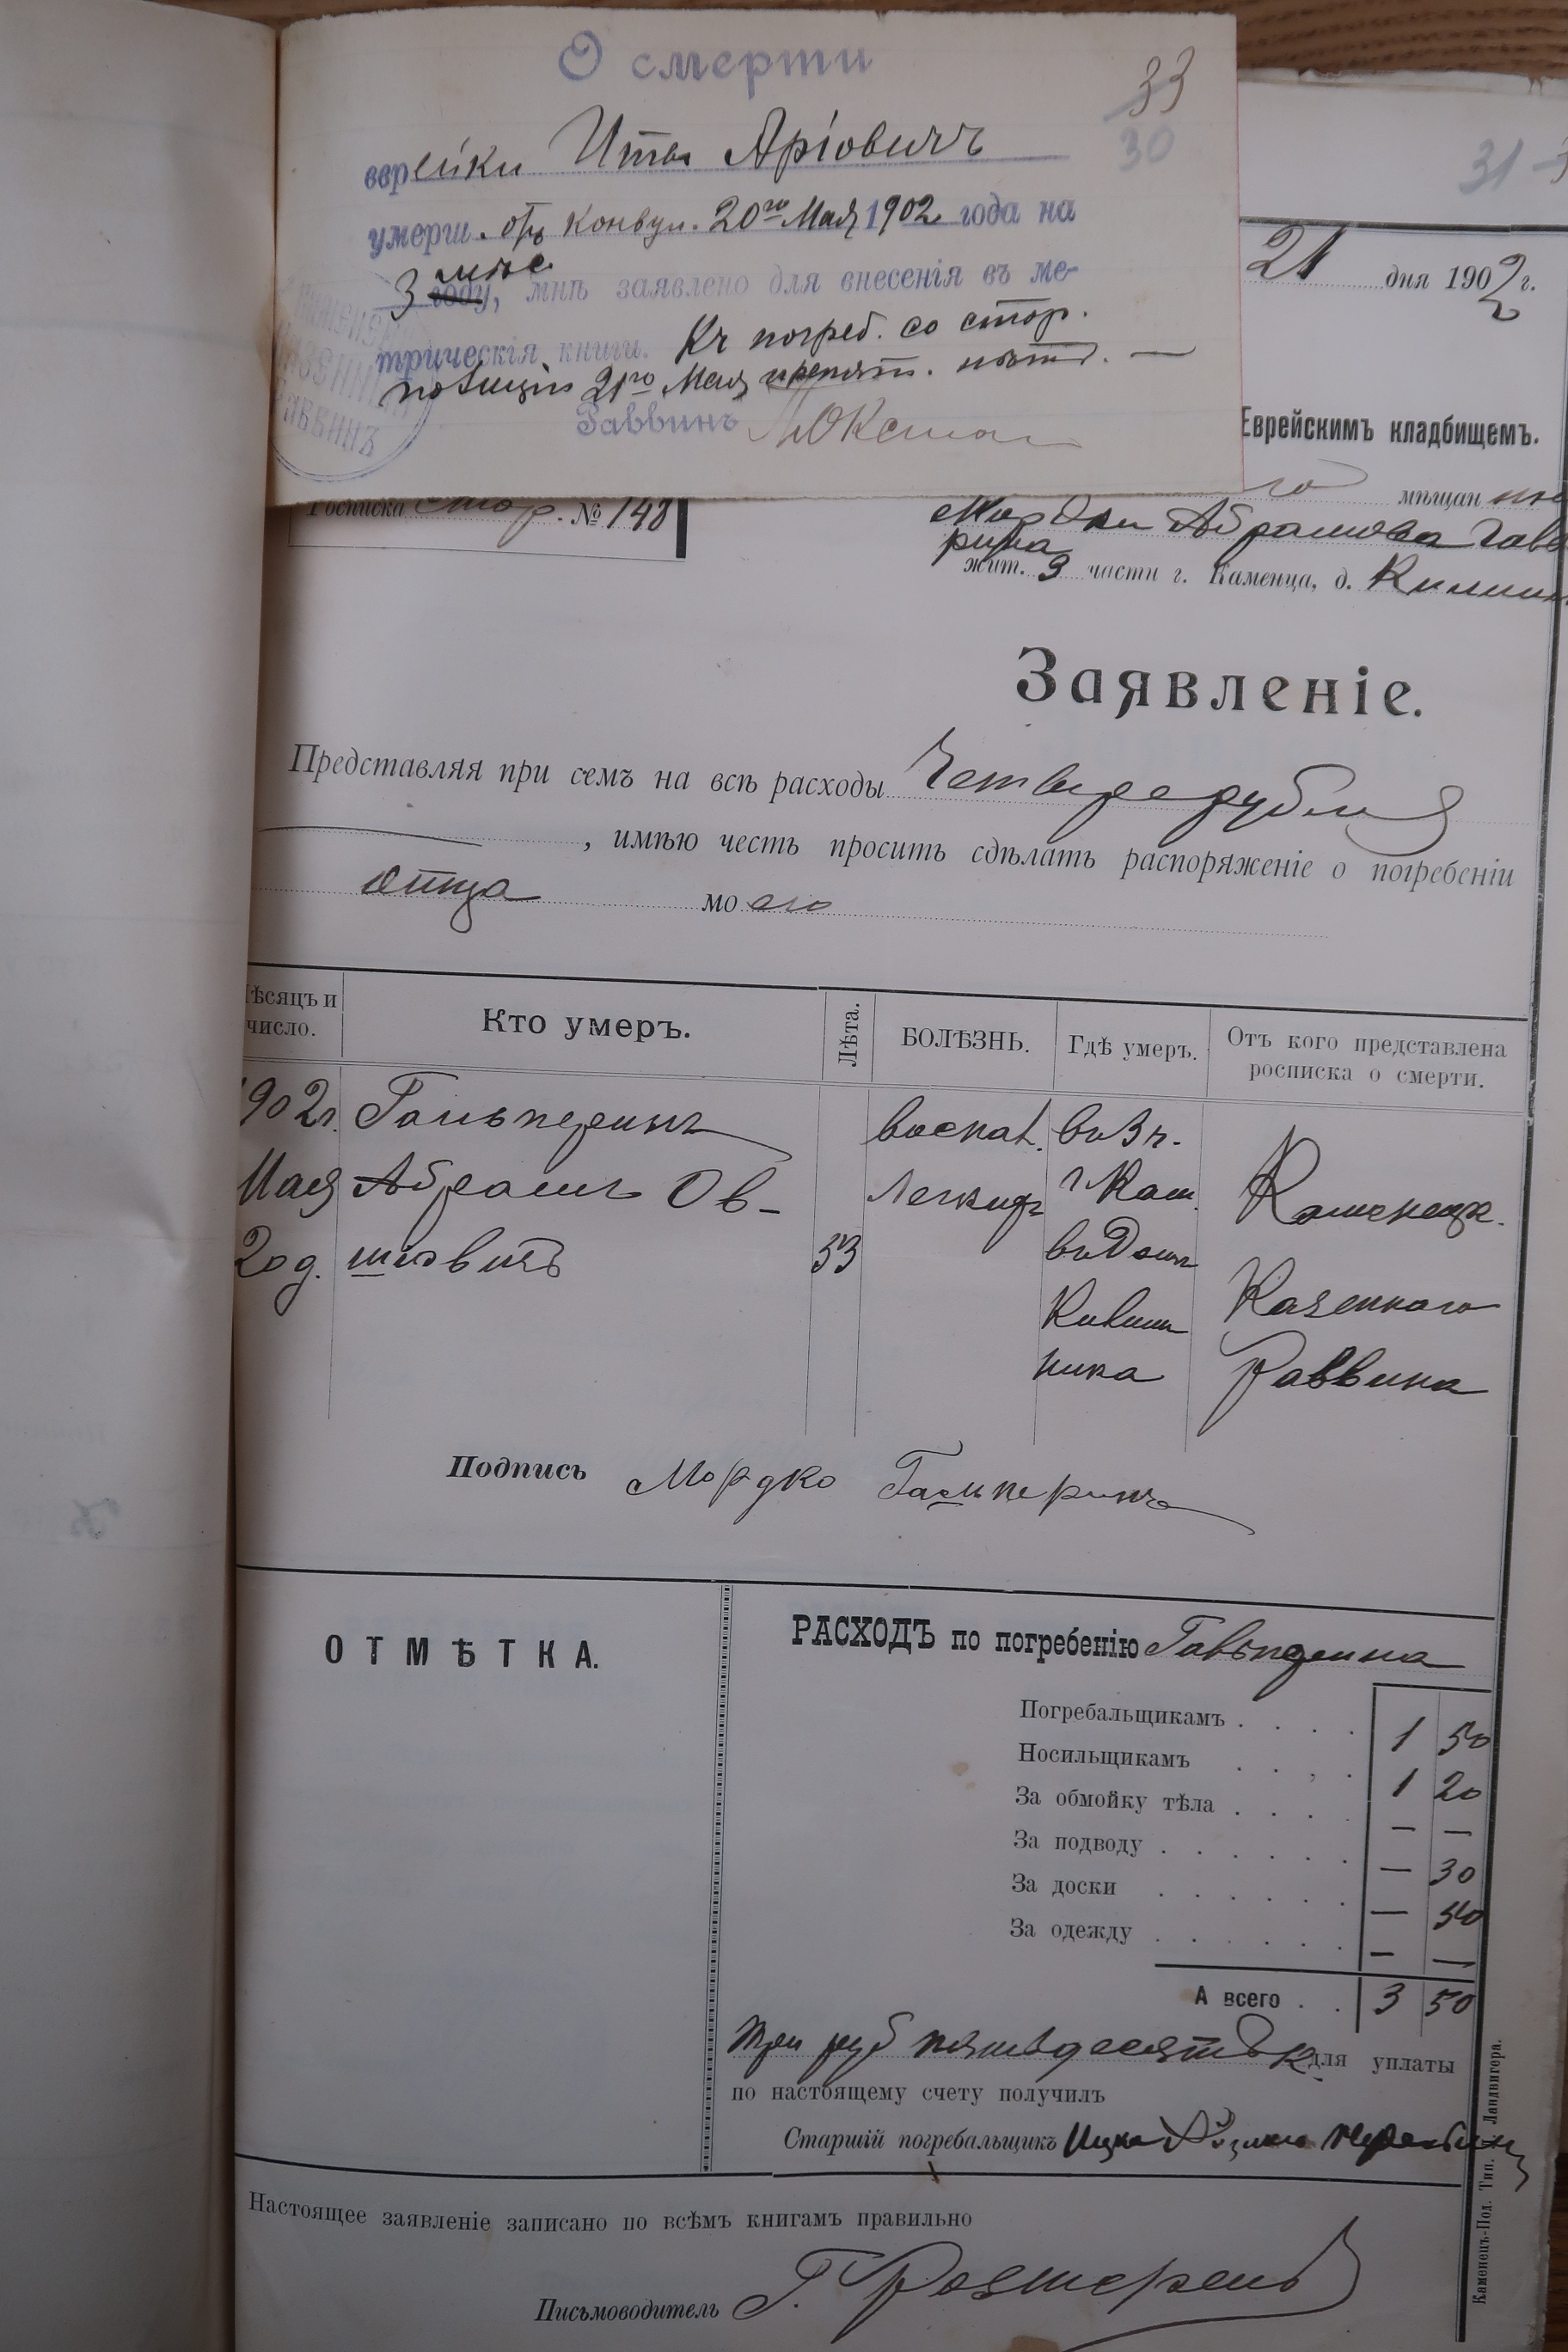 О смерти
33
30
еврейки Итты Аріовичъ
умерш. отъ конвул. 20го Мая 1902 года на
3 мѣс. году, мнѣ заявлено для внесенія въ ме-
трическія книги. Къ погреб. со стор.
полиціи 21го Мая препят. нѣтъ. —
Раввинъ
КАЗЕННЫЙ
РАВВИНЪ
31
21 дня 1902 г.
Еврейскимъ кладбищемъ.
го мѣщан
Мордки Абрамова Галь
рина
жит. 3 части г. Каменца, д.
Росписка стор. № 148
Заявленіе.
Представляя при семъ на всѣ расходы Четыре рубля
, имѣю честь просить сдѣлать распоряженіе о погребеніи
отца моего
ѣсяцъ и число.
Кто умеръ.
Лѣта.
БОЛѢЗНЬ.
Гдѣ умеръ.
Отъ кого представлена росписка о смерти.
1902г. Гальперинъ воспал. въ 3 ч.
Мая Абрамъ Ов- легкихъ г. Кам. Каменецк.
20 д. шіовичъ 53 въ домѣ
Казеннаго
ника Раввина
Подпись Мордко Гальперинъ
ОТМѢТКА.
РАСХОДЪ по погребенію Гальперина
Погребальщикамъ . . . . 1 50
Носильщикамъ . . . 1 20
За обмойку тѣла . . . . — —
За подводу . . . . . . — 30
За доски . . . . . . — 50
За одежду . . . . . . — —
А всего . . 3 50
Три руб пятьдесятъ к для уплаты
по настоящему счету получилъ
Старшій погребальщикъ Ицко
Настоящее заявленіе записано по всѣмъ книгамъ правильно
Письмоводитель Г.
Каменецъ-Под. Тип. Ландвигера.